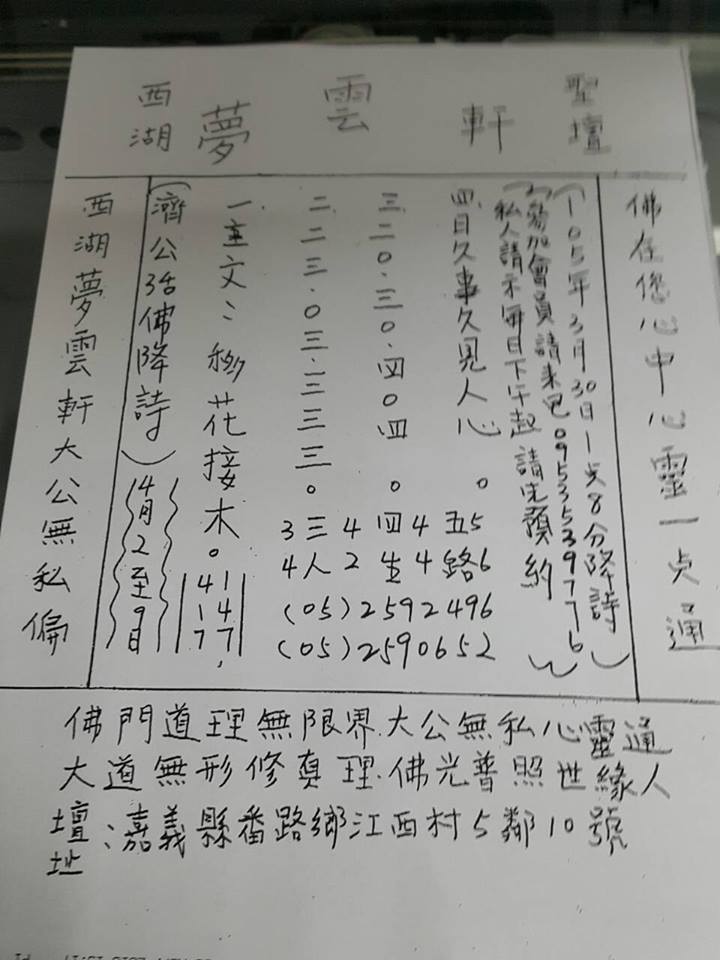 西湖夢雲軒聖壇
佛在您心中心靈一点通
(105年3月30日1点8分降詩)
參加會員請来电0953539776
私人請示每日下午起請先預約
四.日久事久見人心。五路
三.二0.三0.四0四。四生
二.二三.0三.三三三。三人
一.主文:移花接木。
4 1
1 4
7 7,
3 4 4 5
4 2 4 6
(05)2592496
(05)2590652
(濟公活佛降詩)
4月2至9日
西湖夢雲軒大公無私偏
佛門道理無限界.大公無私心靈通
大道無形修真理.佛光普照世緣人
壇址:嘉義縣番路鄉江西村5鄰10號